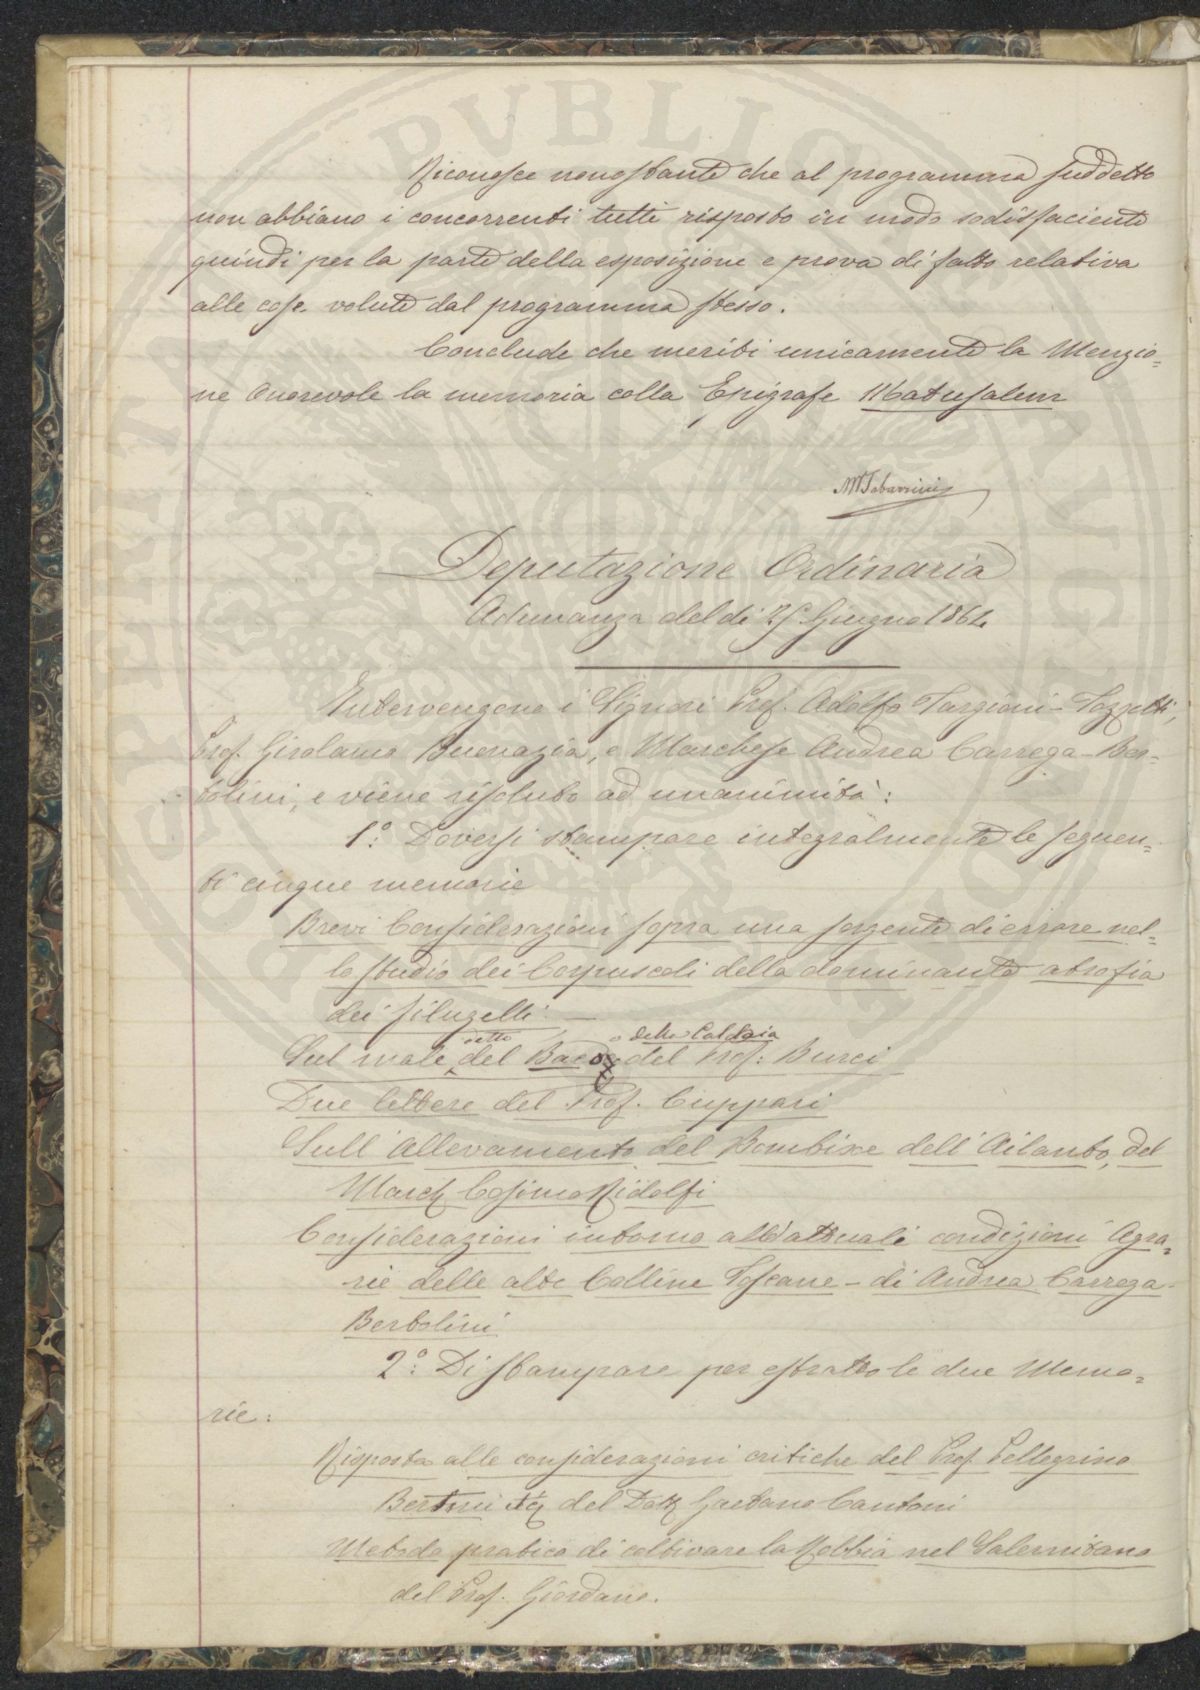 Riconosce nonostante che al programma suddetto
non abbiano i concorrenti tutti risposto in modo sodisfaciente
quindi per la parte della esposizione e prova di fatto relativa
alle cose volute dal programma stesso.
Conclude che meriti unicamente la Menzio=
ne Onorevole la memoria colla Epigrafe Matusalem
MTabarrini
Deputazione Ordinaria
Adunanza del dì Giugno 1864
Intervengono i Signori Prof. Adolfo Targioni-Tozzetti,
Prof. Girolamo Buonazia, e Marchese Andrea Carrega-Ber=
tolini, e viene risoluto ad unanimità:
1.º Doversi stampare integralmente le seguen=
ti cinque memorie
Brevi Considerazioni sopra una sorgente di errore nel=
lo studio dei Corpuscoli della dominante atrofia
dei filugelli —
detto o della Caldaia
Sul male del Baco del Prof: Burci
Due lettere del Prof. Cuppari
Sull'allevamento del Bombice dell'Ailanto, del
March Cosimo Ridolfi
Considerazioni intorno all'attuali condizioni Agra=
rie delle alte Colline Toscane - di Andrea Carrega-
Bertolini
2.º Di stampare per estratto le due Memo=
rie:
Risposta alle considerazioni critiche del Prof. Pellegrino
Bertini del Dott Gaetano Cantoni
Metodo pratico di coltivare la Robbia nel Salernitano
del Prof. Giordano.